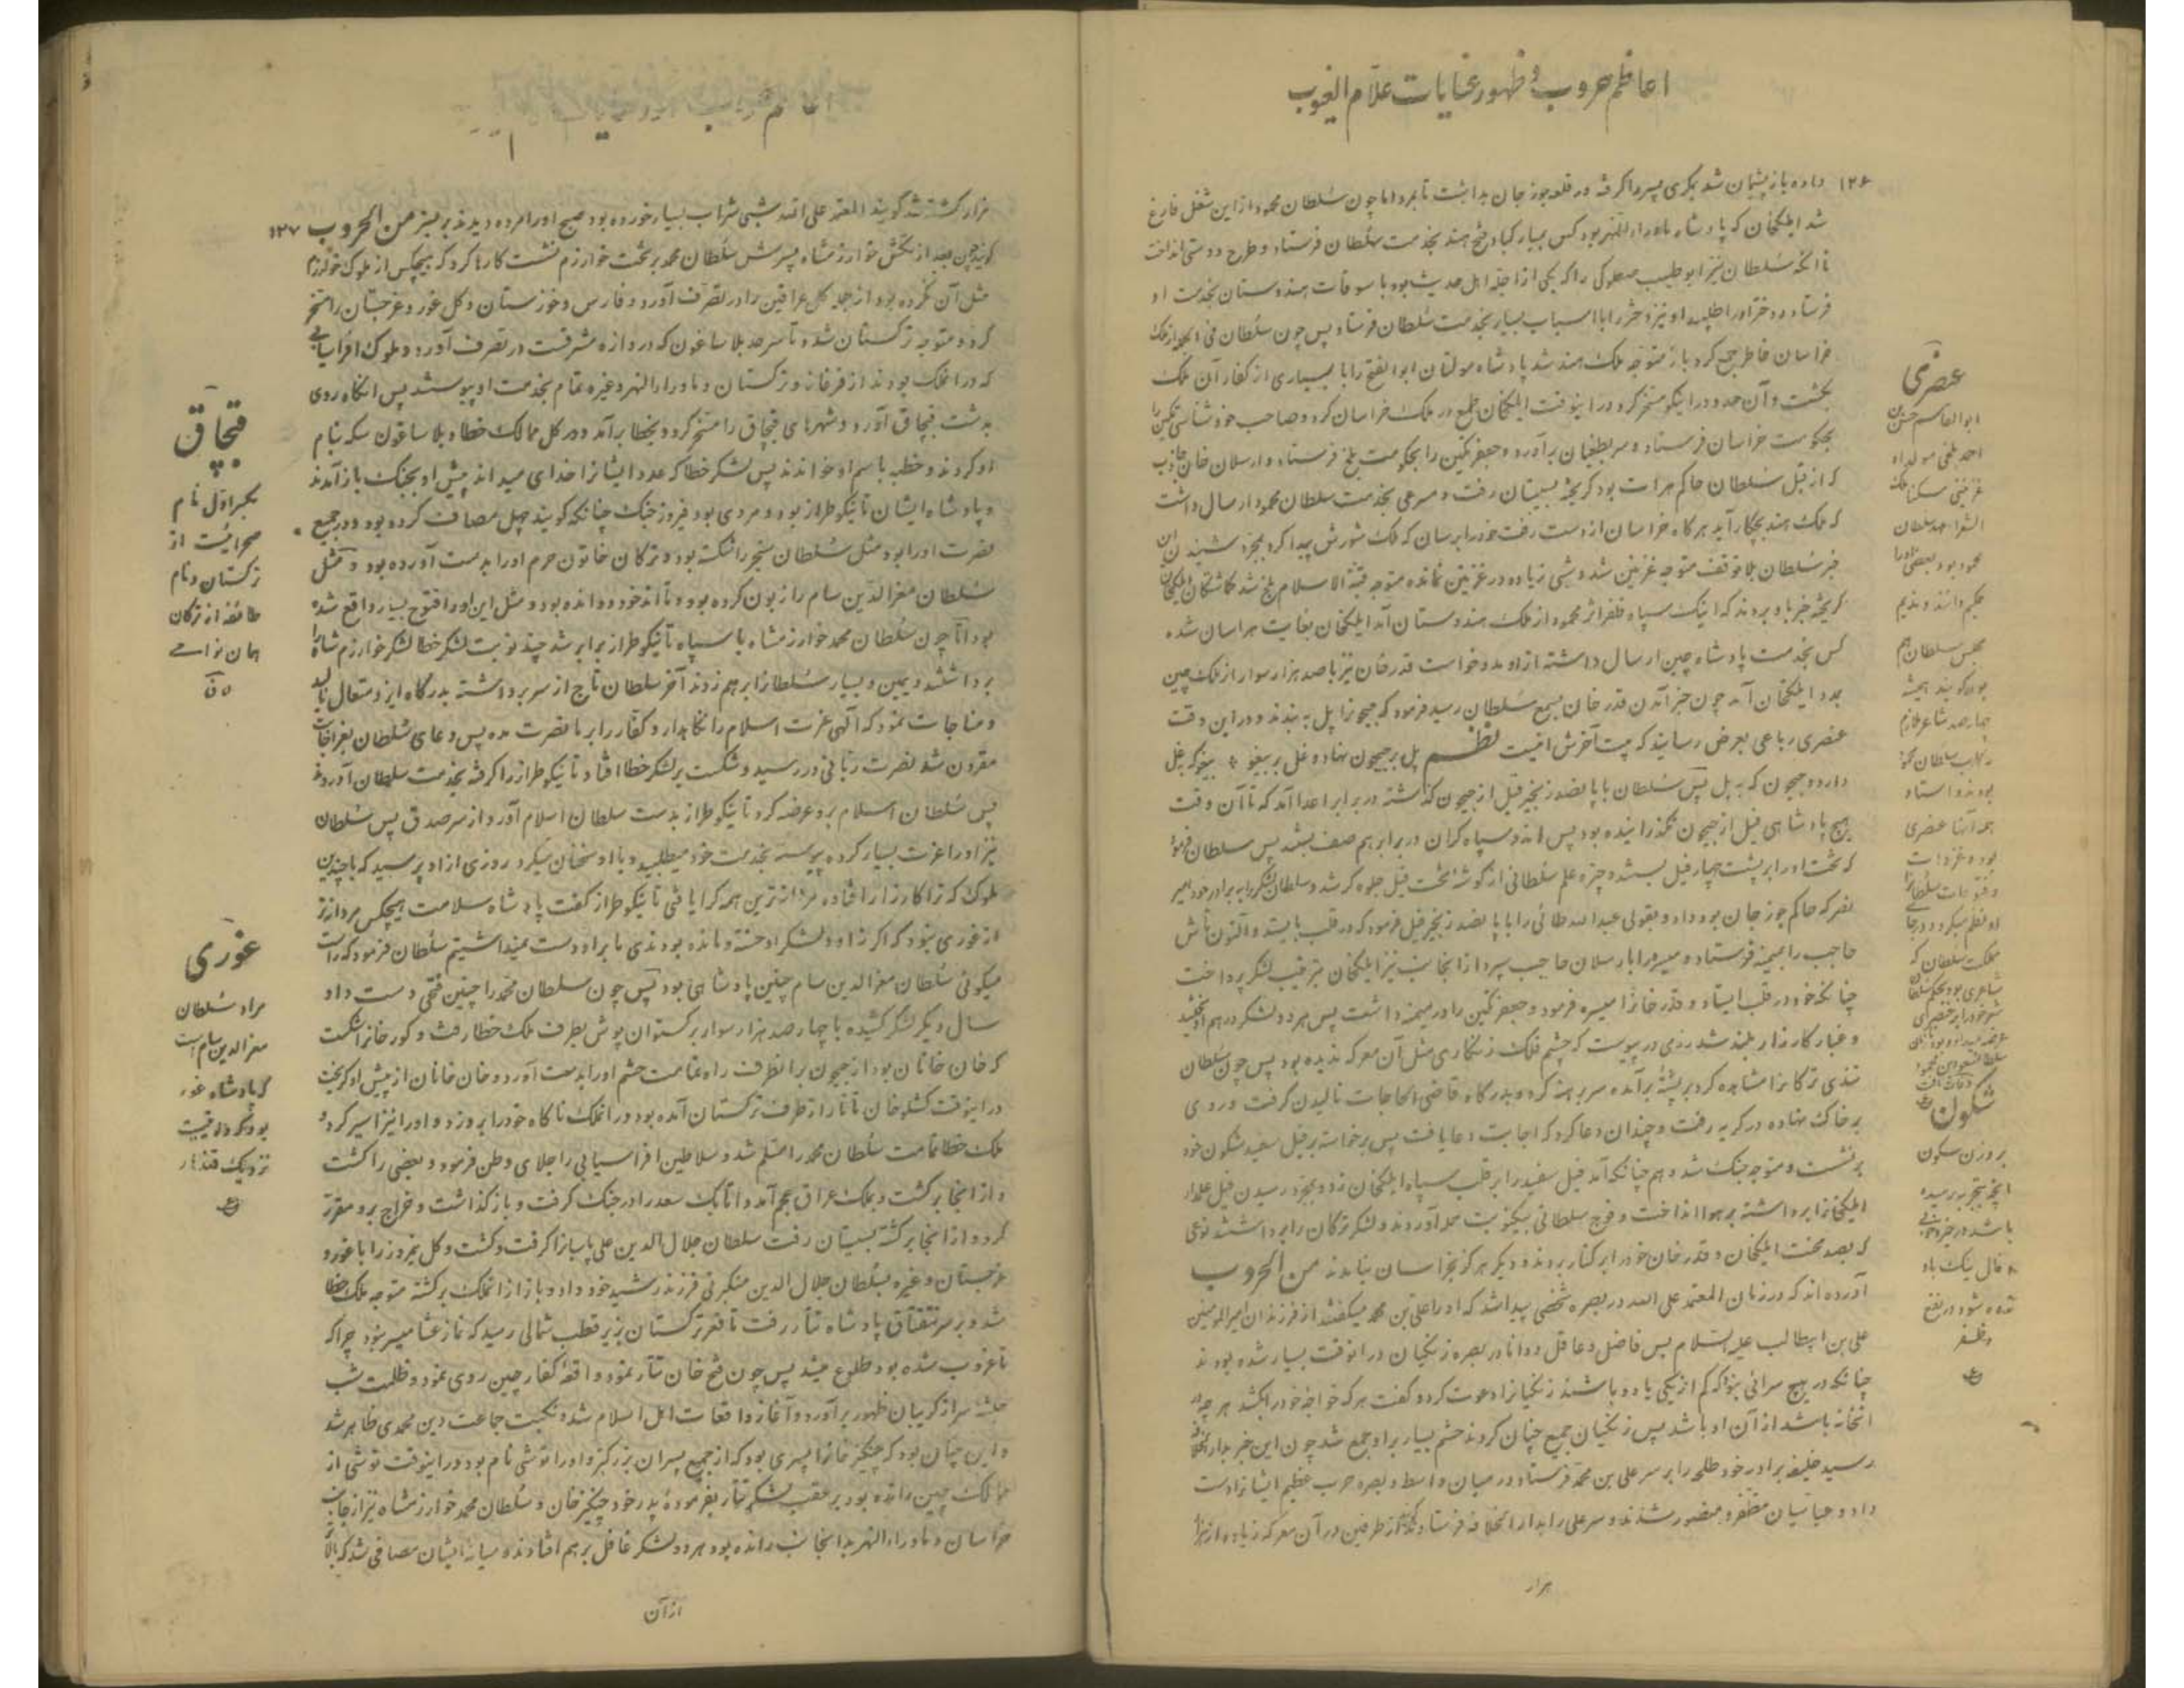 اعاظم حروب و ظهور عنایات علام الغیوب
۱۲۶ داده باز پشیمان شد بمکری پسر را گرفته در قلعه جوزجان بداشت تا بمرد اما چون سلطان محمود از این شغل فارغ
شد ایلکخان که پادشاه ماوراء النهر بود کس بمبارکباد فتح هند بخدمت سلطان فرستاد و طرح دوستی انداخت
تا آنکه سلطان نیز ابو طیب صعلوکی را که یکی از اجله اهل حدیث بود با سوقات هندوستان بخدمت او
فرستاد و دختر او را طلبید او نیز دختر را با اسباب بسیار بخدمت سلطان فرستاد پس چون سلطان فی الجمله از ملک
خراسان خاطر جمع کرد باز متوجه ملک هند شد پادشاه مولتان ابو الفتح را با بسیاری از کفار آن ملک
بکشت و آن حدود را نیکو مسخر کرد در اینوقت ایلکخان طمع در ملک خراسان کرد و صاحب خود شناسی تکین را
بحکومت خراسان فرستاد و سر بطغیان برآورد و جعفر تکین را بحکومت بلخ فرستاد و ارسلان خان جاذب
که از قبل سلطان حاکم هرات بود گریخته بسیستان رفت و مسرعی بخدمت سلطان محمود ارسال داشت
که ملک هند بچکار آید هرگاه خراسان از دست رفت خود را برسان که ملک شورش پیدا کرد بمجرد شنیدن این
خبر سلطان بلا توقف متوجه غزنین شد و شبی زیاده در غزنین نمانده متوجه قبة الاسلام بلخ شد گماشتگان ایلکخان
گریخته خبر باو بردند که اینک سپاه ظفر اثر محمود از ملک هندوستان آمد ایلکخان بغایت هراسان شده
کس بخدمت پادشاه چین ارسال داشته از او مدد خواست قدرخان نیز با صد هزار سوار از ملک چین
بمدد ایلکخان آمد چون خبر آمدن قدر خان بسمع سلطان رسید فرمود که جیحونرا پل به بندند و در این وقت
عنصری رباعی بعرض رسانید که بیت آخرش اینست نظم پل بر جیحون نهاد و غل بر بیغو * بیغو که بغل
دارد و جیحون که به پل پس سلطان با پانصد زنجیر فیل از جیحون گذاشته در برابر اعدا آمد که تا آن وقت
هیچ پادشاهی فیل از جیحون نگذرانیده بود پس اندو سپاه گران در برابر هم صف بستند پس سلطان فرمود
که تخت او را بر پشت چهار فیل بستند و چتر و علم سلطانی از گوشه تخت فیل جلوه گر شد و سلطان لشکر را به برادر خود امیر
نصر که حاکم جوزجان بود داد و بقولی عبدالله طائی را با پانصد زنجیر فیل فرمود که در قلب بایستد و آلتون تاش
حاجب را بمیمنه فرستاد و میسره را بارسلان حاجب سپرد از آنجانب نیز ایلکخان بترتیب لشکر پرداخت
چنانکه خود در قلب ایستاد و قدر خانرا میسره فرمود و جعفر تکین را در میمنه داشت پس هر دو لشکر در هم آویختند
و غبار کارزار بلند شد رزمی در پیوست که چشم فلک زنگاری مثل آن معرکه ندیده بود پس چون سلطان
تندی ترکانرا مشاهده کرد بر پشته برآمده سر برهنه کرد و بدرگاه قاضی الحاجات نالیدن گرفت و روی
بر خاک نهاده در گریه رفت و چندان دعا کرد که اجابت دعا یافت پس برخاسته بر فیل سفید شکون خود
برنشست و متوجه جنک شد و هم چنانکه آمد فیل سفید را بر قلب سپاه ایلکخان زد و بمجرد رسیدن فیل علمدار
ایلکخانرا برداشته بر هوا انداخت و فوج سلطانی بیکنوبت حمله آوردند و لشکر ترکان را برداشتند نوعی
که بصد محنت ایلکخان و قدر خان خود را بر کنار بردند و دیگر هرگز بخراسان نیامدند من الحروب
آورده اند که در زمان المعتمد علی الله در بصره شخصی پیدا شد که او را علی بن محمد میگفتند از فرزندان امیر المومنین
علی بن ابیطالب علیه السلام بس فاضل و عاقل و دانا در بصره زنگیان در انوقت بسیار شده بودند
چنانکه در هیچ سرائی نبود که کم از یکی یا دو باشند زنگیانرا دعوت کرد و گفت هر که خواجه خود را بکشد هر چه در
انخانه باشد از آن او باشد پس زنگیان جمیع چنان کردند حشم بسیار بر او جمع شد چون این خبر بدار الخلافه
رسید خلیفه برادر خود طلحه را بر سر علی بن محمد فرستاد در میان واسط و بصره حرب عظیم ایشانرا دست
داد و عباسیان مظفر و منصور شدند و سر علی را بدار الخلافه فرستادند از طرفین در آن معرکه زیاده از
هزار
عنصری
ابو القاسم حسن بن
احمد بلخی مولد او
غزنین مسکنا ملک
الشعرا عهد سلطان
محمود بود بعضی او را
حکیم دانند و ندیم
مجلس سلطان هم
بود گویند همیشه
چهارصد شاعر ملازم
رکاب سلطان محمود
بودند و استاد
همه آنها عنصری
بوده غزوات
و فتوحات سلطانرا
او نظم میکرد و در جای
مملکت سلطان که
شاعری بود بحکم سلطان
شعر خود را بر عنصری
شکون
بر وزن سکون
آنچه بتجربه رسیده
باشد در خیر و خوبی
و فال نیک باد
زده شود در نفع
و ظفر
هزار کشته شد گویند المعتمد علی الله شبی شراب بسیار خورده بود صبح او را مرده دیدند بر بستر من الحروب ۱۲۷
گویند چون بعد از تکش خوارزمشاه پسرش سلطان محمد بر تخت خوارزم نشست کارها کرد که هیچکس از ملوک خوارزم
مثل آن نکرده بود از جمله کل عراقین را در تصرف آورد و فارس و خوزستان و کل غور و غرجستان را مسخر
کرد و متوجه ترکستان شد و تا سرحد بلاساغون که دروازه مشرقست در تصرف آورد و ملوک افراسیابی
که در انملک بودند از فرغانه و ترکستان و ماوراءالنهر و غیره تمام بخدمت او پیوستند پس آنگاه روی
بدشت قبچاق آورد و شهرهای قبچاق را مسخر کرد و بخطا برآمد و در کل ممالک خطا و بلاساغون سکه بنام
او کردند و خطبه باسم او خواندند پس لشکر خطا که عدد ایشانرا خدای میداند پیش او بجنگ باز آمدند
و پادشاه ایشان تانیکو طراز بود و مردی بود فیروز جنک چنانکه گویند چهل مصاف کرده بود و در جمیع
نصرت او را بود مثل سلطان سنجر را شکسته بود و ترکان خاتون حرم او را بدست آورده بود و مثل
سلطان معز الدین سام را زبون کرده بود و تا اندخود دوانده بود و مثل این او را فتوح بسیار واقع شده
بود اما چون سلطان محمد خوارزمشاه با سپاه تانیکو طراز برابر شد چند نوبت لشکر خطا لشکر خوارزم شاه را
برداشتند و یمین و یسار سلطانرا بر هم زدند آخر سلطان تاج از سر برداشته بدرگاه ایزد متعال نالید
و مناجات نمود که الهی عزت اسلام را نگاهدار و کفار را بر ما نصرت مده پس دعای سلطان بعز اجابت
مقرون شد نصرت ربانی در رسید و شکست بر لشکر خطا افتاد و تانیکو طراز را گرفته بخدمت سلطان آوردند
پس سلطان اسلام برو عرضه کرد تانیکو طراز بدست سلطان اسلام آورد از سر صدق پس سلطان
نیز او را عزت بسیار کرده پیوسته بخدمت خود میطلبید و با او سخنان میکرد روزی از او پرسید که با چندین
ملوک که ترا کارزار افتاده مردانه ترین همه کرا یافتی تانیکو طراز گفت پادشاه سلامت هیچکس مردانه تر
از غوری نبود که اگر نه او و لشکر او خسته و مانده بودندی ما بر او دست نمیداشتیم سلطان فرمود که راست
میگوئی سلطان معز الدین سام چنین پادشاهی بود پس چون سلطان محمد را چنین فتحی دست داد
سال دیگر لشکر کشیده با چهارصد هزار سوار برگستوان پوش بطرف ملک خطا رفت و کور خانرا شکست
که خان خانان بود از جیحون برانطرف راه تمامت حشم او را بدست آورد و خان خانان از پیش او گریخت
در اینوقت کشلو خان تاتار از طرف ترکستان آمده بود در انملک ناگاه خود را برو زد و او را نیز اسیر کرد و
ملک خطا تمامت سلطان محمد را مسلم شد و سلاطین افراسیابی را جلای وطن فرمود و بعضی را کشت
و از آنجا برگشت و بملک عراق عجم آمد و اتابک سعد را در جنک گرفت و باز گذاشت و خراج برو مقرر
کرد و از آنجا برگشته بسیستان رفت سلطان جلال الدین علی بامیانرا گرفت و کشت و کل نیمروز را با غور و
غرجستان و غیره بسلطان جلال الدین منکبرنی فرزند رشید خود داد و باز از انملک برگشته متوجه ملک خطا
شد و بر سر تنقتاق پادشاه تتار رفت تا قعر ترکستان بزیر قطب شمالی رسید که نماز عشا میسر نبود چرا که
تا غروب شده بود طلوع میشد پس چون فتح خان تتار نمود واقعه کفار چین روی نمود و ظلمت شب
حبشه سر از گریبان ظهور برآورد و آغاز واقعات اهل اسلام شد و نکبت جماعت دین محمدی ظاهر شد
و این چنان بود که چنگیز خانرا پسری بود که از جمیع پسران بزرگتر و او را توشی نام بود در اینوقت توشی از
ممالک چین رانده بود بر عقب لشکر تتار بفرموده پدر خود چنگیز خان و سلطان محمد خوارزمشاه نیز از جانب
خراسان و ماوراءالنهر بدانجانب رانده بود هر دو لشکر غافل بر هم افتادند و میانه ایشان مصافی شد که بالا
از آن
قبچاق
بکسر اول نام
صحرائیست از
ترکستان و نام
طائفه از ترکان
همان نواحی
غوری
مراد سلطان
معز الدین سام است
که پادشاه غور
بود
نزدیک قندهار